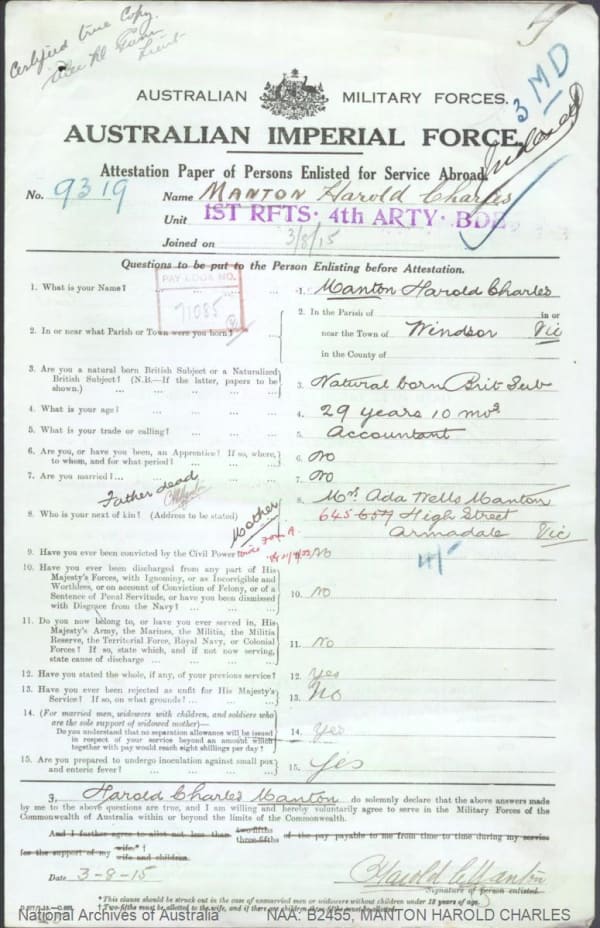 Certified true Copy.
Lieut
3 MD
Indexed
AUSTRALIAN MILITARY FORCES.
AUSTRALIAN IMPERIAL FORCE.
Attestation Paper of Persons Enlisted for Service Abroad.
No. 9319 Name MANTON Harold Charles
Unit 1ST RFTS. 4th ARTY. BDE
Joined on 3/8/15
Questions to be put to the Person Enlisting before Attestation.
PAY BOOK NO.
71085
1. What is your Name? ... ... 1. Manton Harold Charles
2. In or near what Parish or Town were you born? 2. In the Parish of in or
near the Town of Windsor Vic
in the County of
3. Are you a natural born British Subject or a Naturalized
British Subject? (N.B.—If the latter, papers to be
shown.) ... ... ... 3. Natural born Brit Sub
4. What is your age? ... ... ... 4. 29 years 10 mos
5. What is your trade or calling? ... ... ... 5. Accountant
6. Are you, or have you been, an Apprentice? If so, where,
to whom, and for what period? ... ... 6. No
7. Are you married? ... ... ... 7. No
Father dead
8. Who is your next of kin? (Address to be stated) Mother 8. Mrs Ada Wells Manton
645-657 High Street
Armadale Vic
9. Have you ever been convicted by the Civil Power No
10. Have you ever been discharged from any part of His
Majesty's Forces, with Ignominy, or as Incorrigible and
Worthless, or on account of Conviction of Felony, or of a
Sentence of Penal Servitude, or have you been dismissed
with Disgrace from the Navy? ... ... 10. No
11. Do you now belong to, or have you ever served in, His
Majesty's Army, the Marines, the Militia, the Militia
Reserve, the Territorial Force, Royal Navy, or Colonial
Forces? If so, state which, and if not now serving,
state cause of discharge ... ... 11. No
12. Have you stated the whole, if any, of your previous service? 12. Yes
13. Have you ever been rejected as unfit for His Majesty's
Service? If so, on what grounds? ... ... 13. No
14. (For married men, widowers with children, and soldiers who
are the sole support of widowed mother)—
Do you understand that no separation allowance will be issued
in respect of your service beyond an amount which
together with pay would reach eight shillings per day? 14. Yes
15. Are you prepared to undergo inoculation against small pox
and enteric fever? ... ... ... 15. Yes
I, Harold Charles Manton do solemnly declare that the above answers made
by me to the above questions are true, and I am willing and hereby voluntarily agree to serve in the Military Forces of the
Commonwealth of Australia within or beyond the limits of the Commonwealth.
And I further agree to allot not less than two-fifths
three-fifths of the pay payable to me from time to time during my service
for the support of my wife.*†
wife and children.
Date 3-8-15 Harold C Manton
Signature of person enlisted.
*This clause should be struck out in the case of unmarried men or widowers without children under 18 years of age.
†Two-fifths must be allotted to the wife, and if there are children three-fifths must be allotted.
National Archives of Australia NAA: B2455, MANTON HAROLD CHARLES